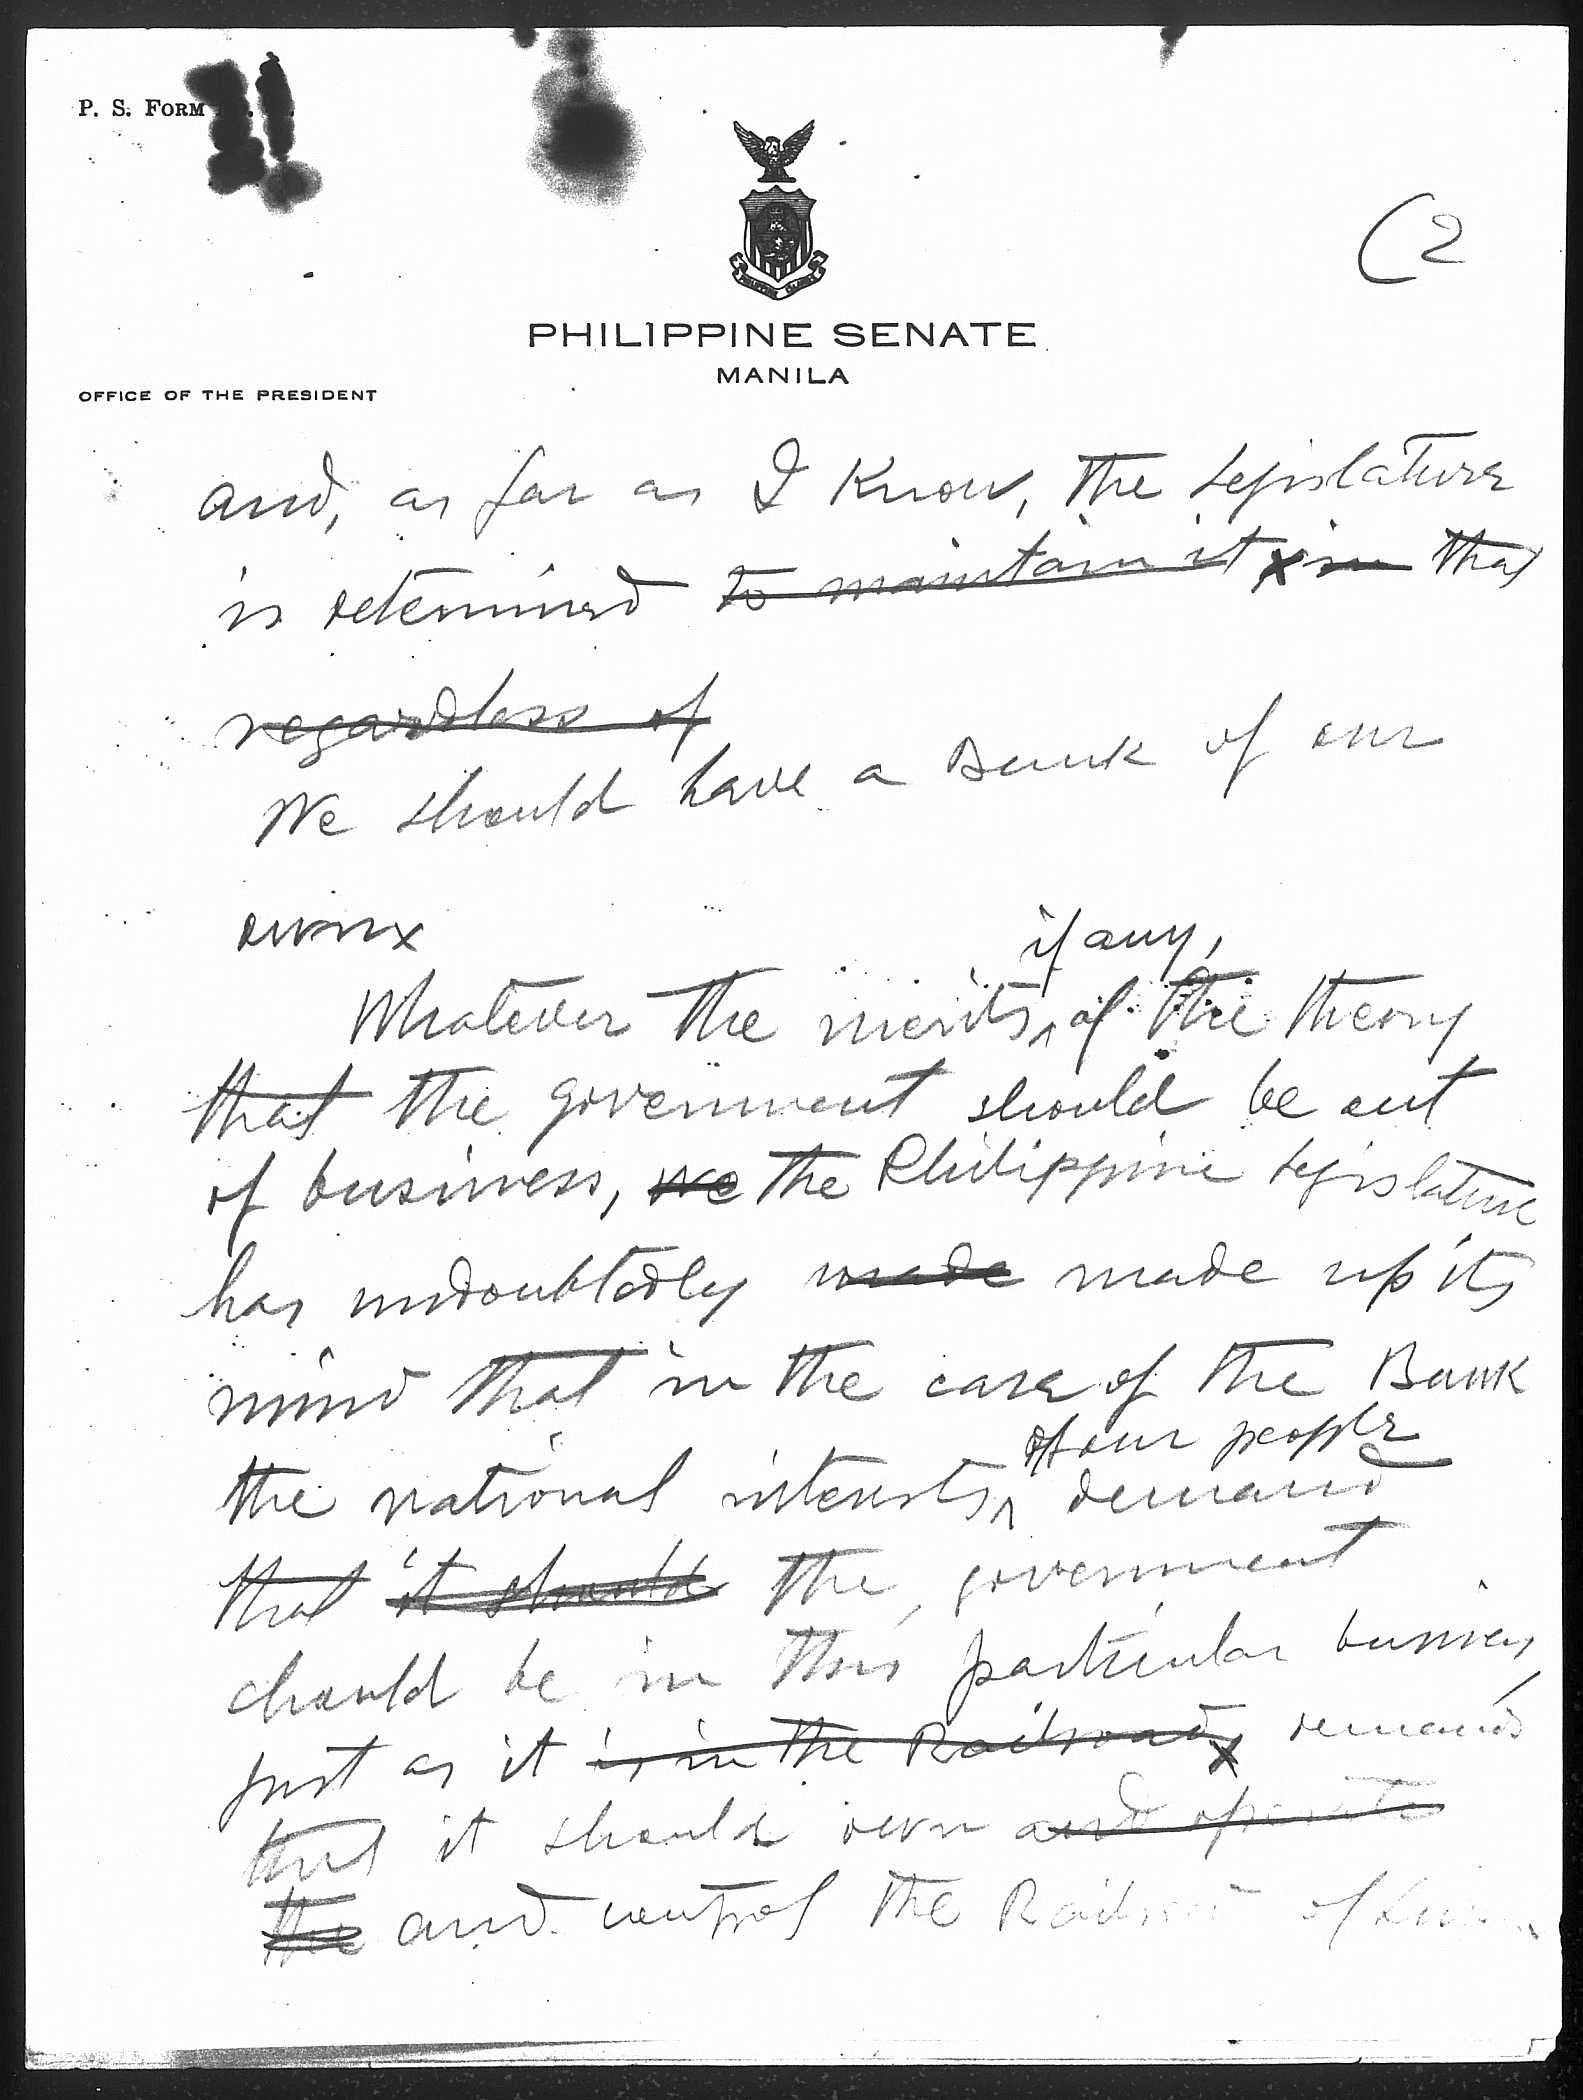 P. S. FORM
(2
PHILIPPINE SENATE
MANILA
OFFICE OF THE PRESIDENT
and, as far as I know, the Legislature
is determined to maintain it x in that
regardless of
We should have a Bank of our
own x
if any,
Whatever the merits of the theory
that the government should be out
of business, we the Philippine Legislature
has undoubtedly made made up its
mind that in the case of the Bank
of our people
the national interests demand
that it should the government
should be in this particular business,
just as it is in the Railroad x demands
that it should own and operate
the and control the Railroad of